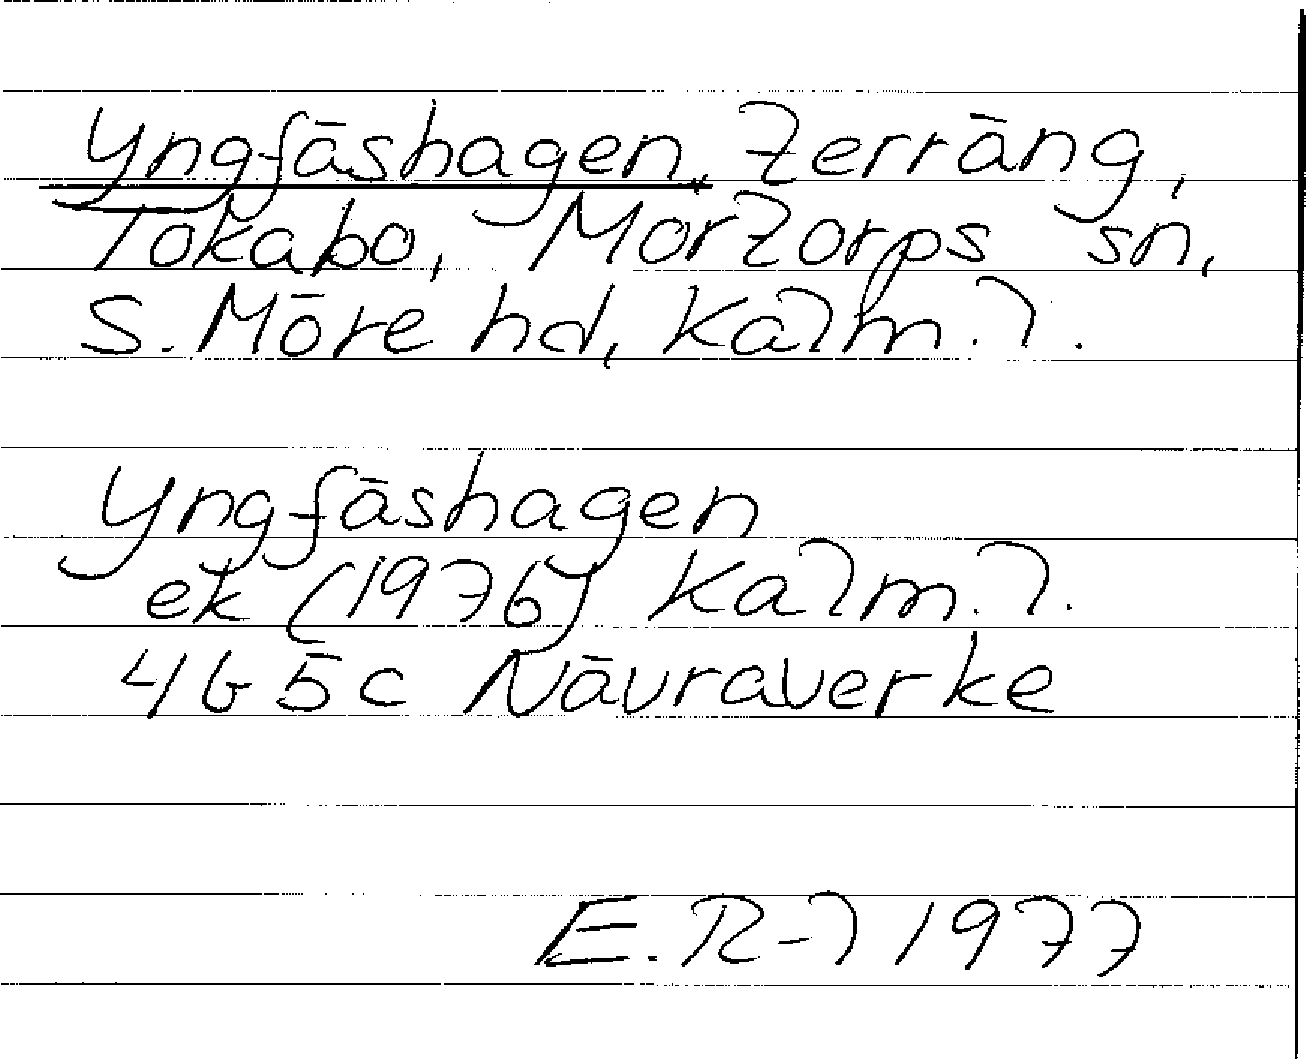 Yngfäshagen, terräng,
Tokabo, Mortorps sn,
S. Möre hd, Kalm. l.
Yngfäshagen
ek (1976) Kalm. l.
4G 5c Nävraverke
E.R-l 1977